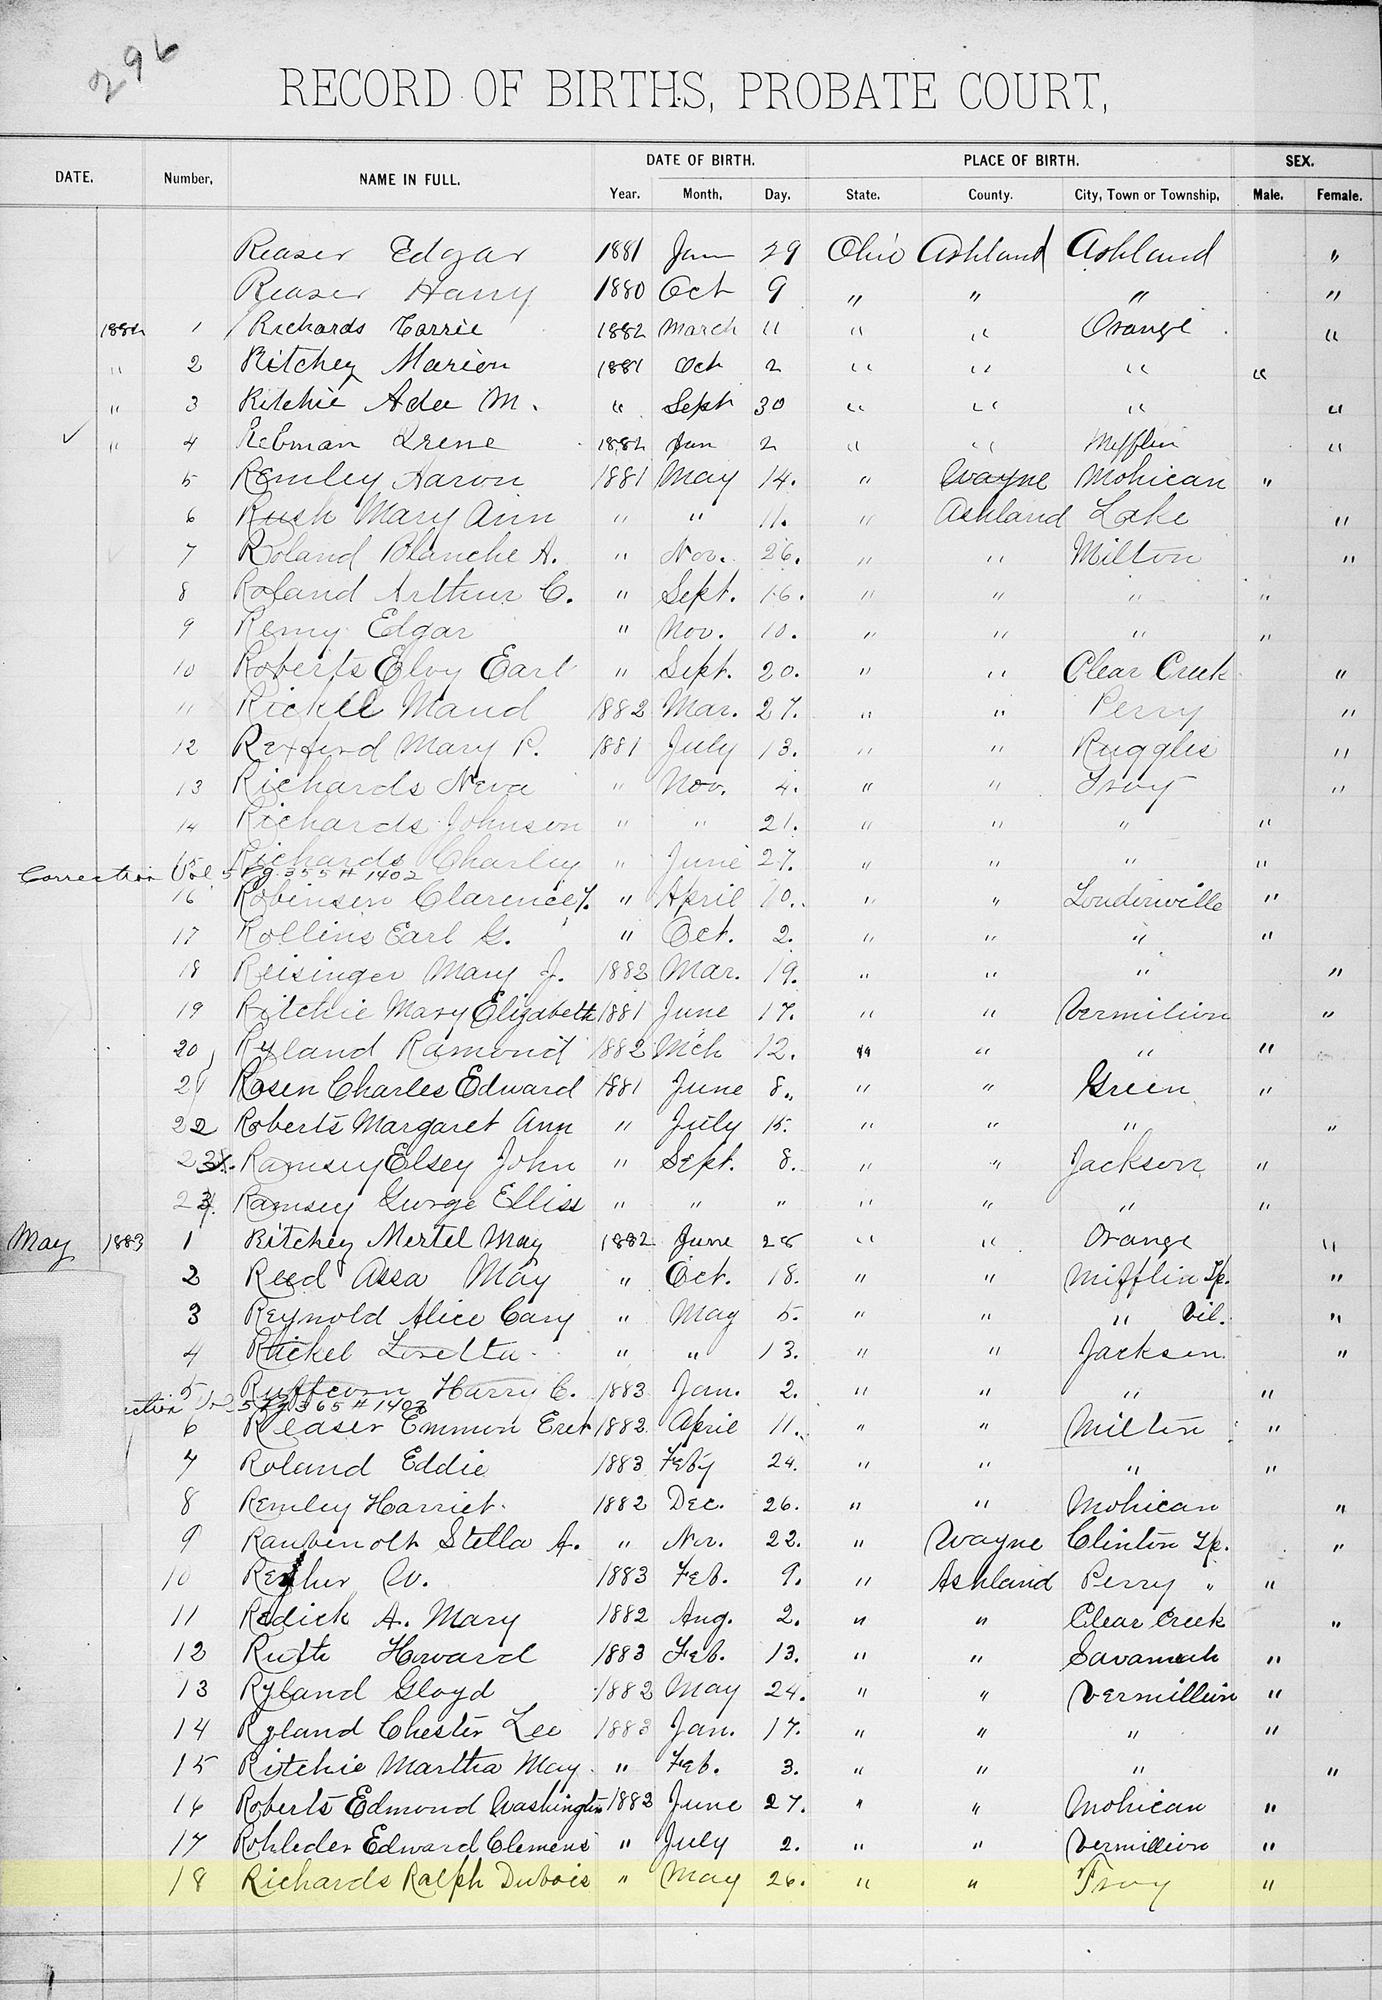 296
RECORD OF BIRTHS, PROBATE COURT,
DATE. Number. NAME IN FULL. DATE OF BIRTH. PLACE OF BIRTH. SEX.
Year. Month. Day. State. County. City, Town or Township. Male. Female.
Reaser Edgar 1881 Jan 29 Ohio Ashland Ashland "
Reaser Harry 1880 Oct 9 " " " "
1882 1 Richards Carrie 1882 March 11 " " Orange "
" 2 Ritchey Marion 1881 Oct 2 " " " "
" 3 Ritchie Ada M. " Sept 30 " " " "
✓ " 4 Rebman Irene 1882 Jan 2 " " Mifflin "
5 Remley Aaron 1881 May 14. " Wayne Mohican "
6 Rush Mary Ann " " 11. " Ashland Lake "
7 Roland Blanche A. " Nov. 26. " " Milton "
8 Roland Arthur C. " Sept. 16. " " " "
9 Remy Edgar " Nov. 10. " " " "
10 Roberts Elvy Earl " Sept. 20. " " Clear Creek "
11 Rickel Maud 1882 Mar. 27. " " Perry "
12 Rexford Mary P. 1881 July 13. " " Ruggles "
13 Richards Neva " Nov. 4. " " Troy "
14 Richards Johnson " " 21. " " " "
15 Richards Charley " June 27. " " " "
Correction Vol 5 Pg. 355 # 1402
16 Robinson Clarence " April 10. " " Loudinville "
17 Rollins Earl G. " Oct. 2. " " " "
18 Reisinger Mary J. 1882 Mar. 19. " " " "
19 Ritchie Mary Elizabeth 1881 June 17. " " Vermilion "
20 Ryland Ramond 1882 Mch 12. " " " "
21 Rosen Charles Edward 1881 June 8. " " Green "
22 Roberts Margaret Ann " July 15. " " " "
23. Ramsey Elsey John " Sept. 8. " " Jackson "
24. Ramsey George Elliss " " " " " " "
May 1883 1 Ritchey Mertel May 1882 June 28 " " Orange "
2 Reed Assa May " Oct. 18. " " Mifflin Tp. "
3 Reynold Alice Cary " May 5. " " " Vil. "
4 Rickel Loretta " " 13. " " Jackson "
5 Ruffcorn Harry C. 1883 Jan. 2. " " " "
ction Vol 5 Pg 365 # 1402
6 Reaser Emmon Eret 1882 April 11. " " Milton "
7 Roland Eddie 1883 Feby 24. " " " "
8 Remley Harriet 1882 Dec. 26. " " Mohican "
9 Raubenolt Stella A. " Nov. 22. " Wayne Clinton Tp. "
10 W. 1883 Feb. 9. " Ashland Perry " "
11 Redick A. Mary 1882 Aug. 2. " " Clear Creek "
12 Ruth Howard 1883 Feb. 13. " " Savannah "
13 Ryland Gloyd 1882 May 24. " " Vermillion "
14 Ryland Chester Lee 1883 Jan. 17. " " " "
15 Ritchie Martha May " Feb. 3. " " " "
16 Roberts Edmond Washington 1882 June 27. " " Mohican "
17 Rohleder Edward Clemens " July 2. " " Vermillion "
18 Richards Ralph Dubois " May 26. " " Troy "